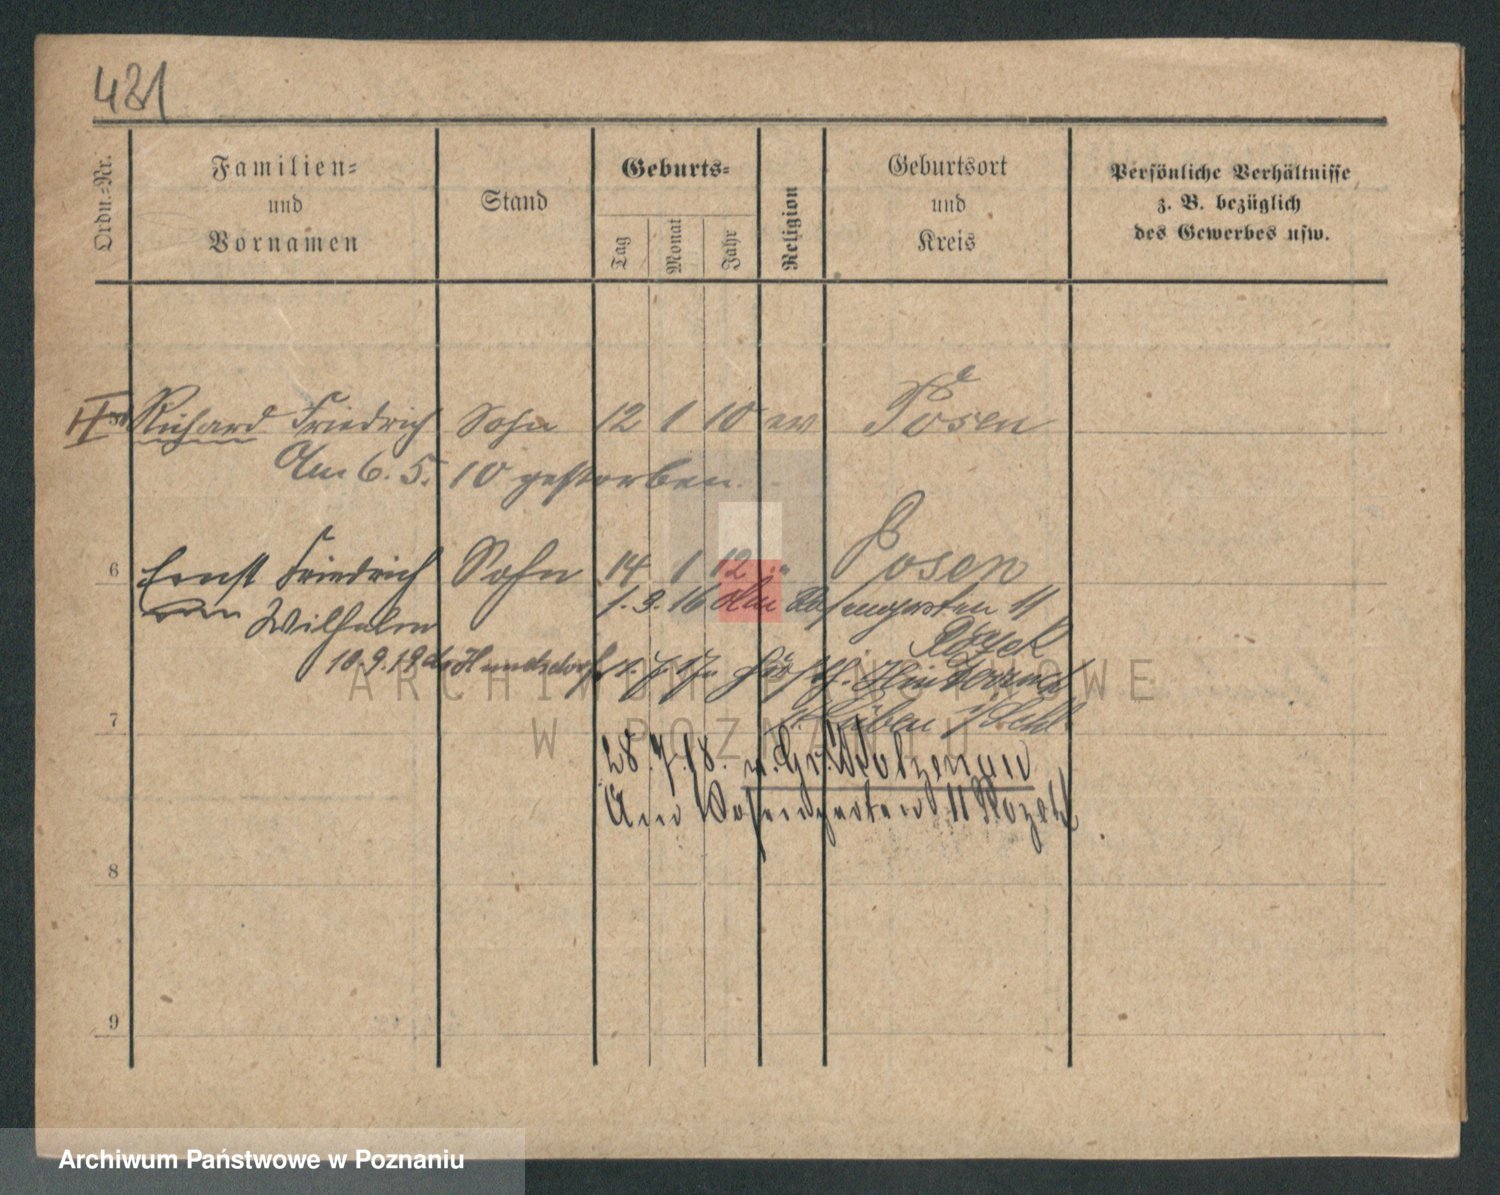 421
Ordn.-Nr.
Familien-
und
Vornamen
Stand
Geburts-
Tag
Monat
Jahr
Religion
Geburtsort
und
Kreis
Persönliche Verhältnisse
z. B. bezüglich
des Gewerbes usw.
II Richard Friedrich Sohn 12 1 10 ev Posen
Am 6. 5. 10 gestorben.
6 Ernst Friedrich Sohn 14 1 12 " Posen
Wilhelm
1. 3. 16 Am Rosengarten 11
10.9.19
7
28.7.18. n. Gr.
Am Rosengarten 11
8
9
ARCHIWUM PAŃSTWOWE
W POZNANIU
Archiwum Państwowe w Poznaniu